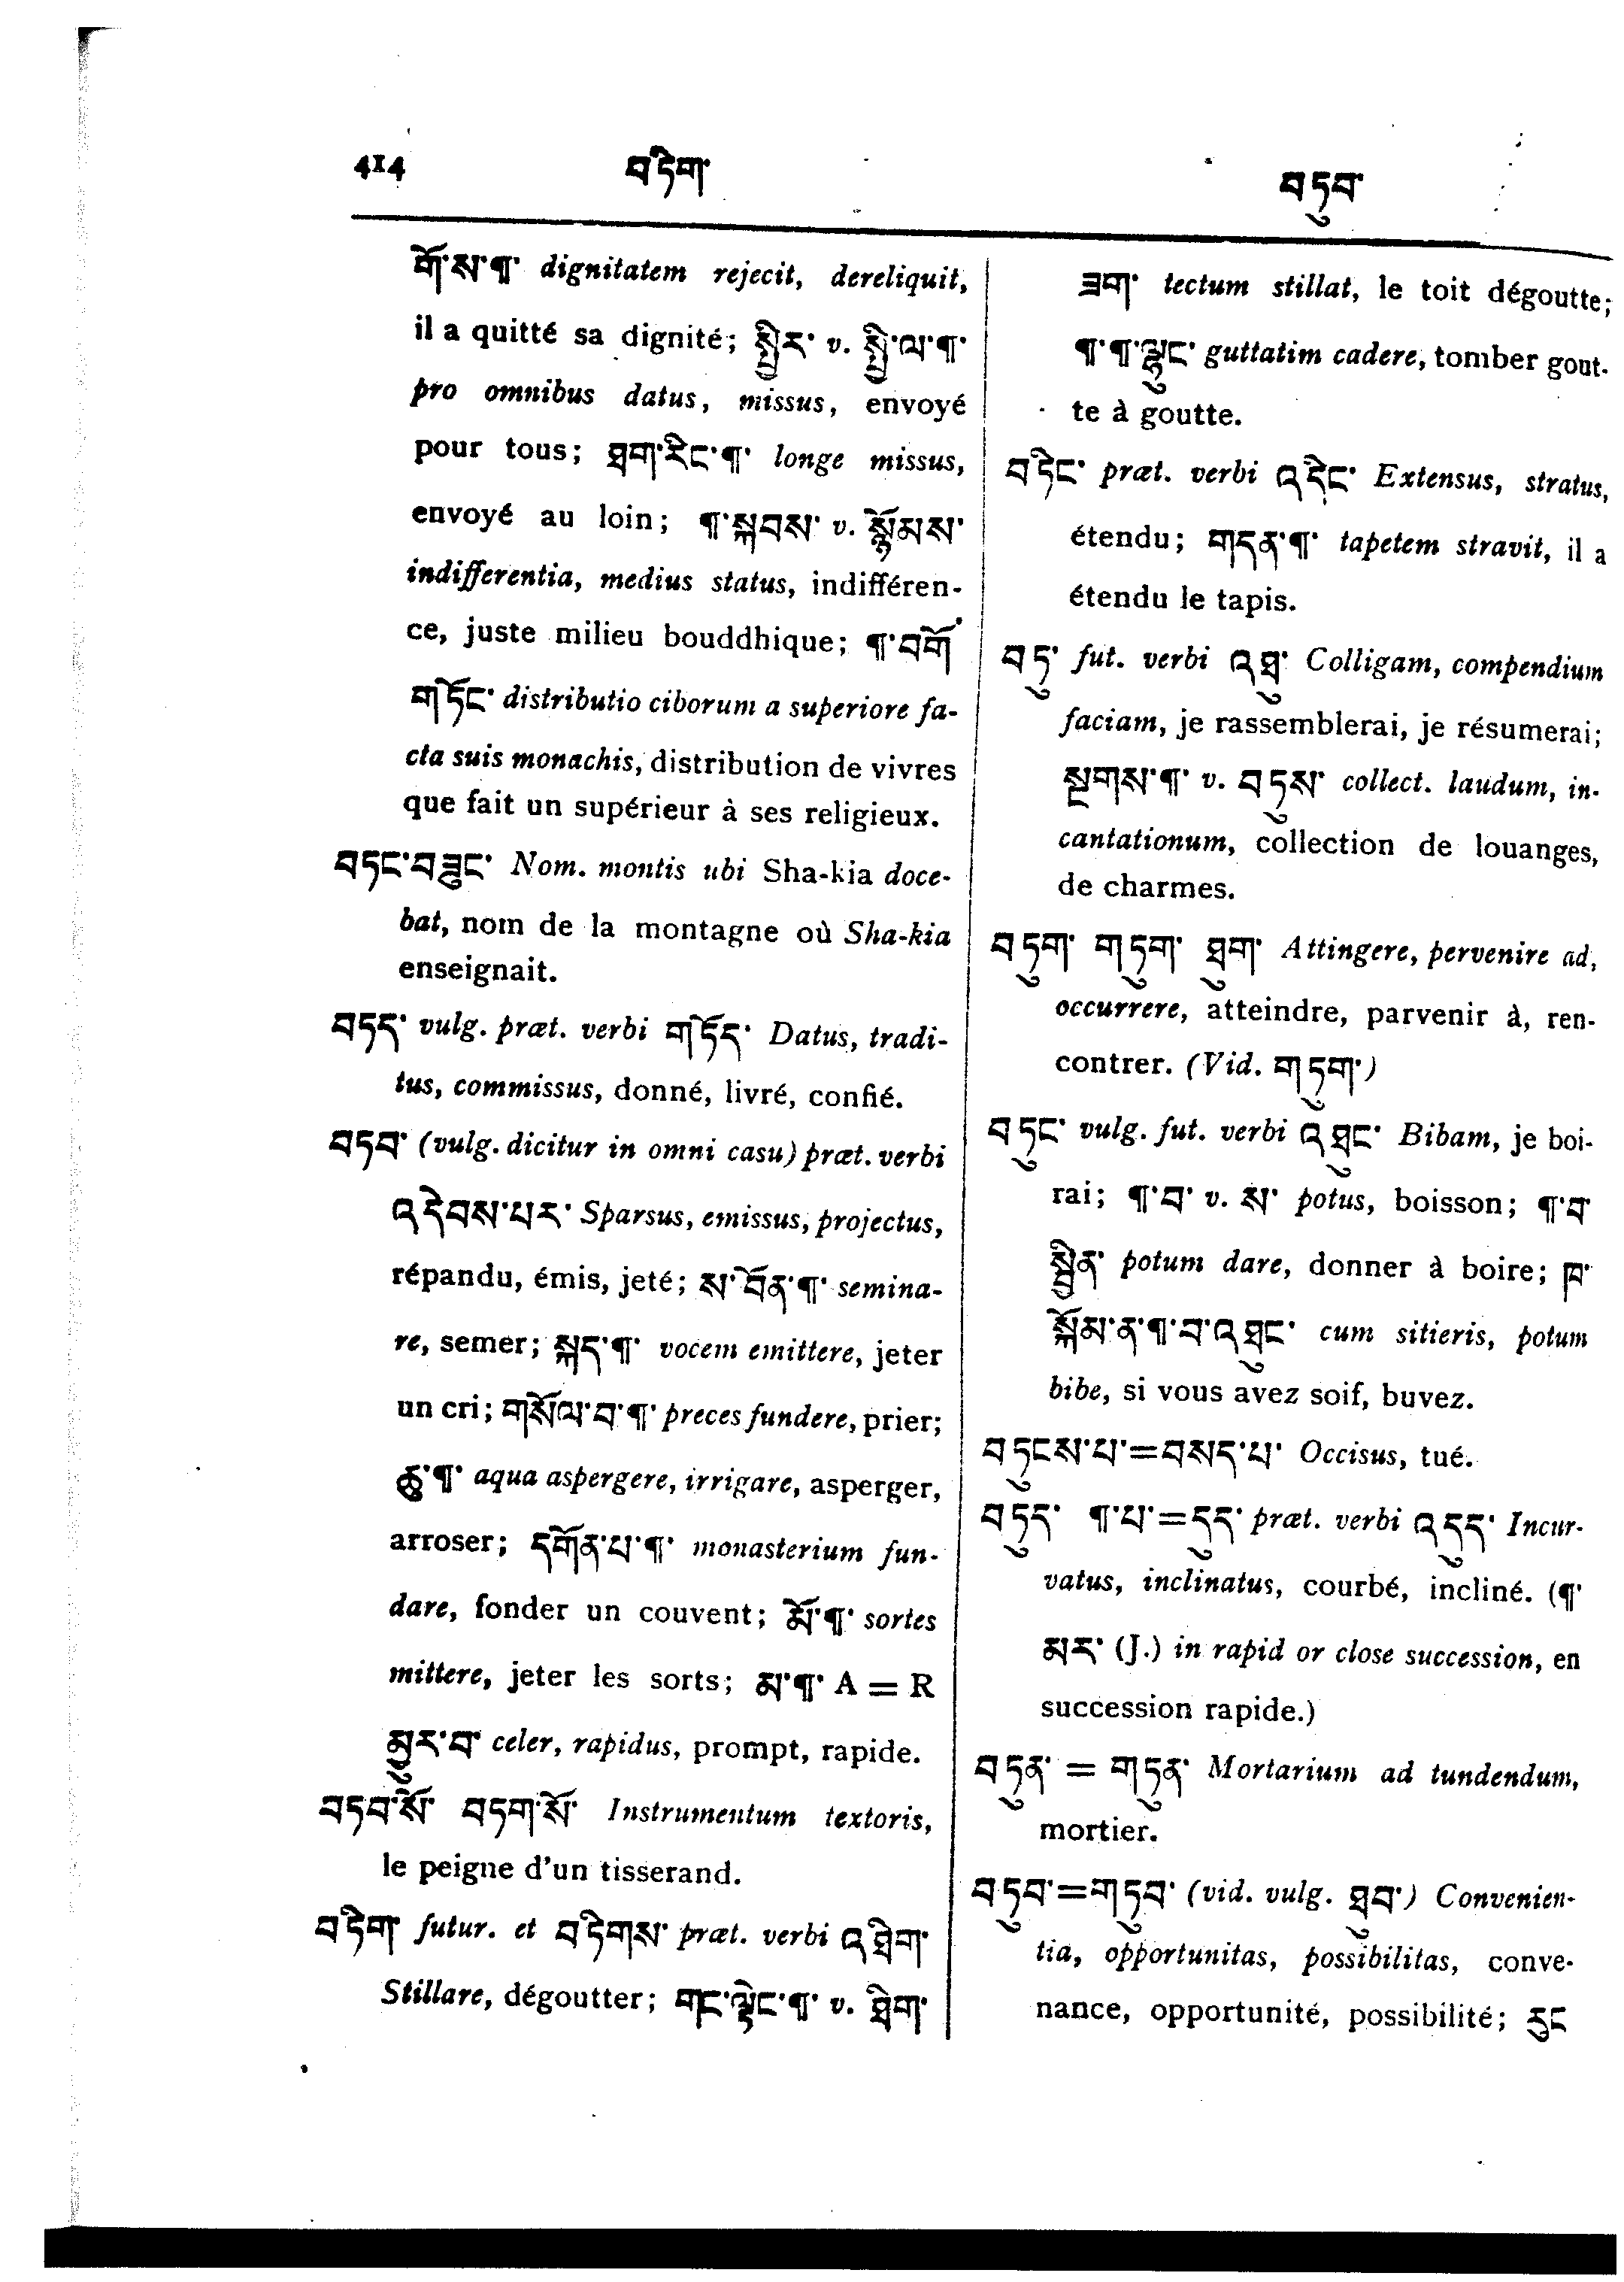 414 བཏིག་ བཏུབ་
གོ་ས་¶་ dignitatem rejecit, dereliquit,
il a quitté sa dignité; སྤྱིར་ v. སྤྱི་ལ་¶་
pro omnibus datus, missus, envoyé
pour tous; ཐག་རིང་¶་ longe missus,
envoyé au loin; ¶་སྐབས་ v. སྙོམས་
indifferentia, medius status, indifféren-
ce, juste milieu bouddhique; ¶་བགོ་
གཏོང་ distributio ciborum a superiore fa-
cta suis monachis, distribution de vivres
que fait un supérieur à ses religieux.
བཏང་བཟུང་ Nom. montis ubi Sha-kia doce-
bat, nom de la montagne où Sha-kia
enseignait.
བཏད་ vulg. præt. verbi གཏོད་ Datus, tradi-
tus, commissus, donné, livré, confié.
བཏབ་ (vulg. dicitur in omni casu) præt. verbi
འདེབས་པར་ Sparsus, emissus, projectus,
répandu, émis, jeté; ས་བོན་¶་ semina-
re, semer; སྐད་¶་ vocem emittere, jeter
un cri; གསོལ་བ་¶་ preces fundere, prier;
ཆུ་¶་ aqua aspergere, irrigare, asperger,
arroser; དགོན་པ་¶་ monasterium fun-
dare, fonder un couvent; མོ་¶་ sortes
mittere, jeter les sorts; མ་¶་ A = R
མྱུར་བ་ celer, rapidus, prompt, rapide.
བཏབ་སོ་ བཏག་སོ་ Instrumentum textoris,
le peigne d'un tisserand.
བཏིག་ futur. et བཏིགས་ præt. verbi འཐིག་
Stillare, dégoutter; གང་ལྟེང་¶་ v. ཐིག་
ཟག་ tectum stillat, le toit dégoutte;
¶་¶་ལྷུང་ guttatim cadere, tomber gout-
te à goutte.
བཏིང་ præt. verbi འདིང་ Extensus, stratus,
étendu; གདན་¶་ tapetem stravit, il a
étendu le tapis.
བཏུ་ fut. verbi འཐུ་ Colligam, compendium
faciam, je rassemblerai, je résumerai;
སྔགས་¶་ v. བཏུས་ collect. laudum, in-
cantationum, collection de louanges,
de charmes.
བཏུག་ གཏུག་ ཐུག་ Attingere, pervenire ad,
occurrere, atteindre, parvenir à, ren-
contrer. (Vid. གཏུག་)
བཏུང་ vulg. fut. verbi འཐུང་ Bibam, je boi-
rai; ¶་བ་ v. ས་ potus, boisson; ¶་བ་
སྦྱིན་ potum dare, donner à boire; ཁ་
སྐོམ་ན་¶་བ་འཐུང་ cum sitieris, potum
bibe, si vous avez soif, buvez.
བཏུངས་པ་=བསད་པ་ Occisus, tué.
བཏུད་ ¶་པ་=དུད་ præt. verbi འདུད་ Incur-
vatus, inclinatus, courbé, incliné. (¶་
མར་ (J.) in rapid or close succession, en
succession rapide.)
བཏུན་ = གཏུན་ Mortarium ad tundendum,
mortier.
བཏུབ་=གཏུབ་ (vid. vulg. ཐུབ་) Convenien-
tia, opportunitas, possibilitas, conve-
nance, opportunité, possibilité; རུང་